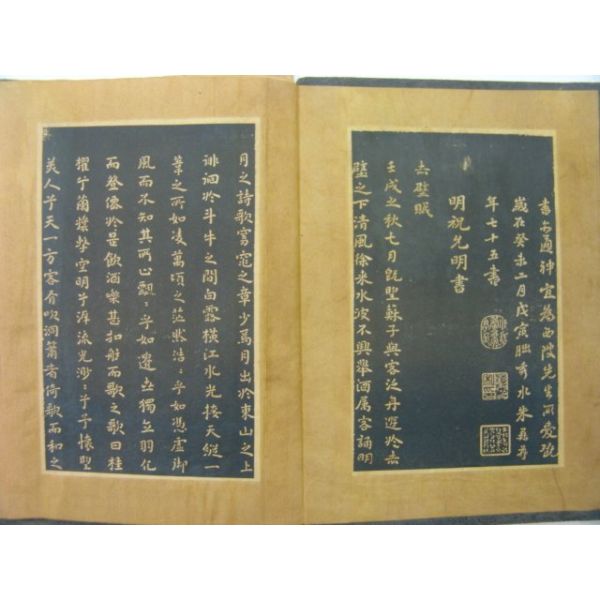 書亦通神宜為西陂先生所愛翫
歲在癸未二月戊寅朏秀水朱彝尊
年七十五書
明祝允明書
赤壁賦
壬戌之秋七月既望蘇子與客泛舟遊於赤
壁之下清風徐来水波不興舉酒属客誦明
月之詩歌窈窕之章少焉月出於東山之上
徘徊於斗牛之間白露横江水光接天縱一
葦之所如凌萬頃之茫然浩〻乎如憑虚御
風而不知其所止飄〻乎如遺世獨立羽化
而登僊於是飲酒樂甚扣舷而歌之歌曰桂
櫂兮蘭槳擊空明兮泝流光渺〻兮予懷望
美人兮天一方客有吹洞簫者倚歌而和之